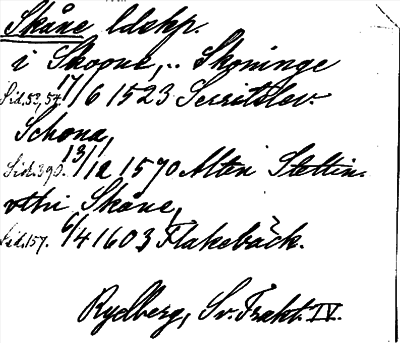 Skåne ldskp.
i Skoone, .. Skoninge
Sid.53,54. 17/6 1523 Serritslev.
Schona,
Sid.390. 13/12 1570 Alten Stettin.
vthi Skåne,
Sid.157. 6/4 1603 Flakebäck.
Rydberg, Sv. Trakt. IV.